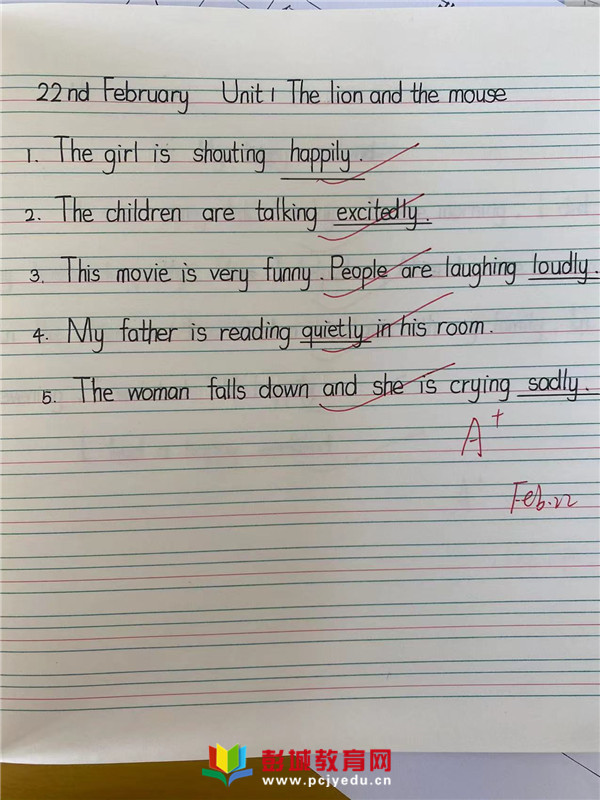 22nd February Unit 1 The lion and the mouse
1. The girl is shouting happily.
2. The children are talking excitedly.
3. This movie is very funny. People are laughing loudly.
4. My father is reading quietly in his room.
5. The woman falls down and she is crying sadly.
A+
Feb.22
彭城教育网
www.pcjyedu.cn